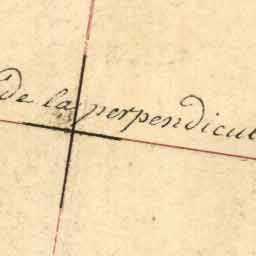 de la perpendicul